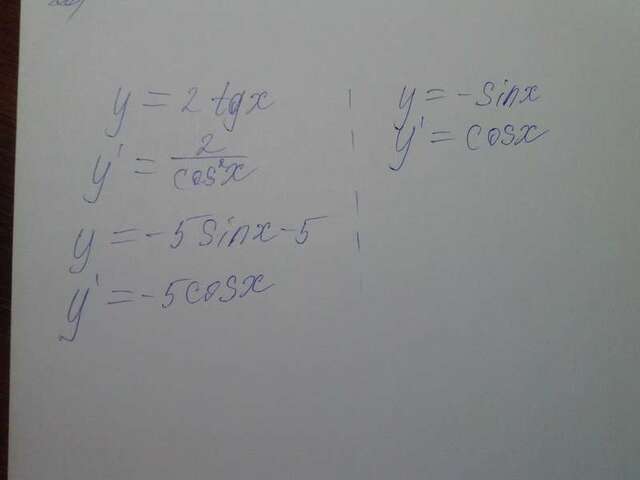 y = 2 tgx
y' = 2/cos²x
y = -5 sinx - 5
y' = -5 cosx
y = -sinx
y' = cosx